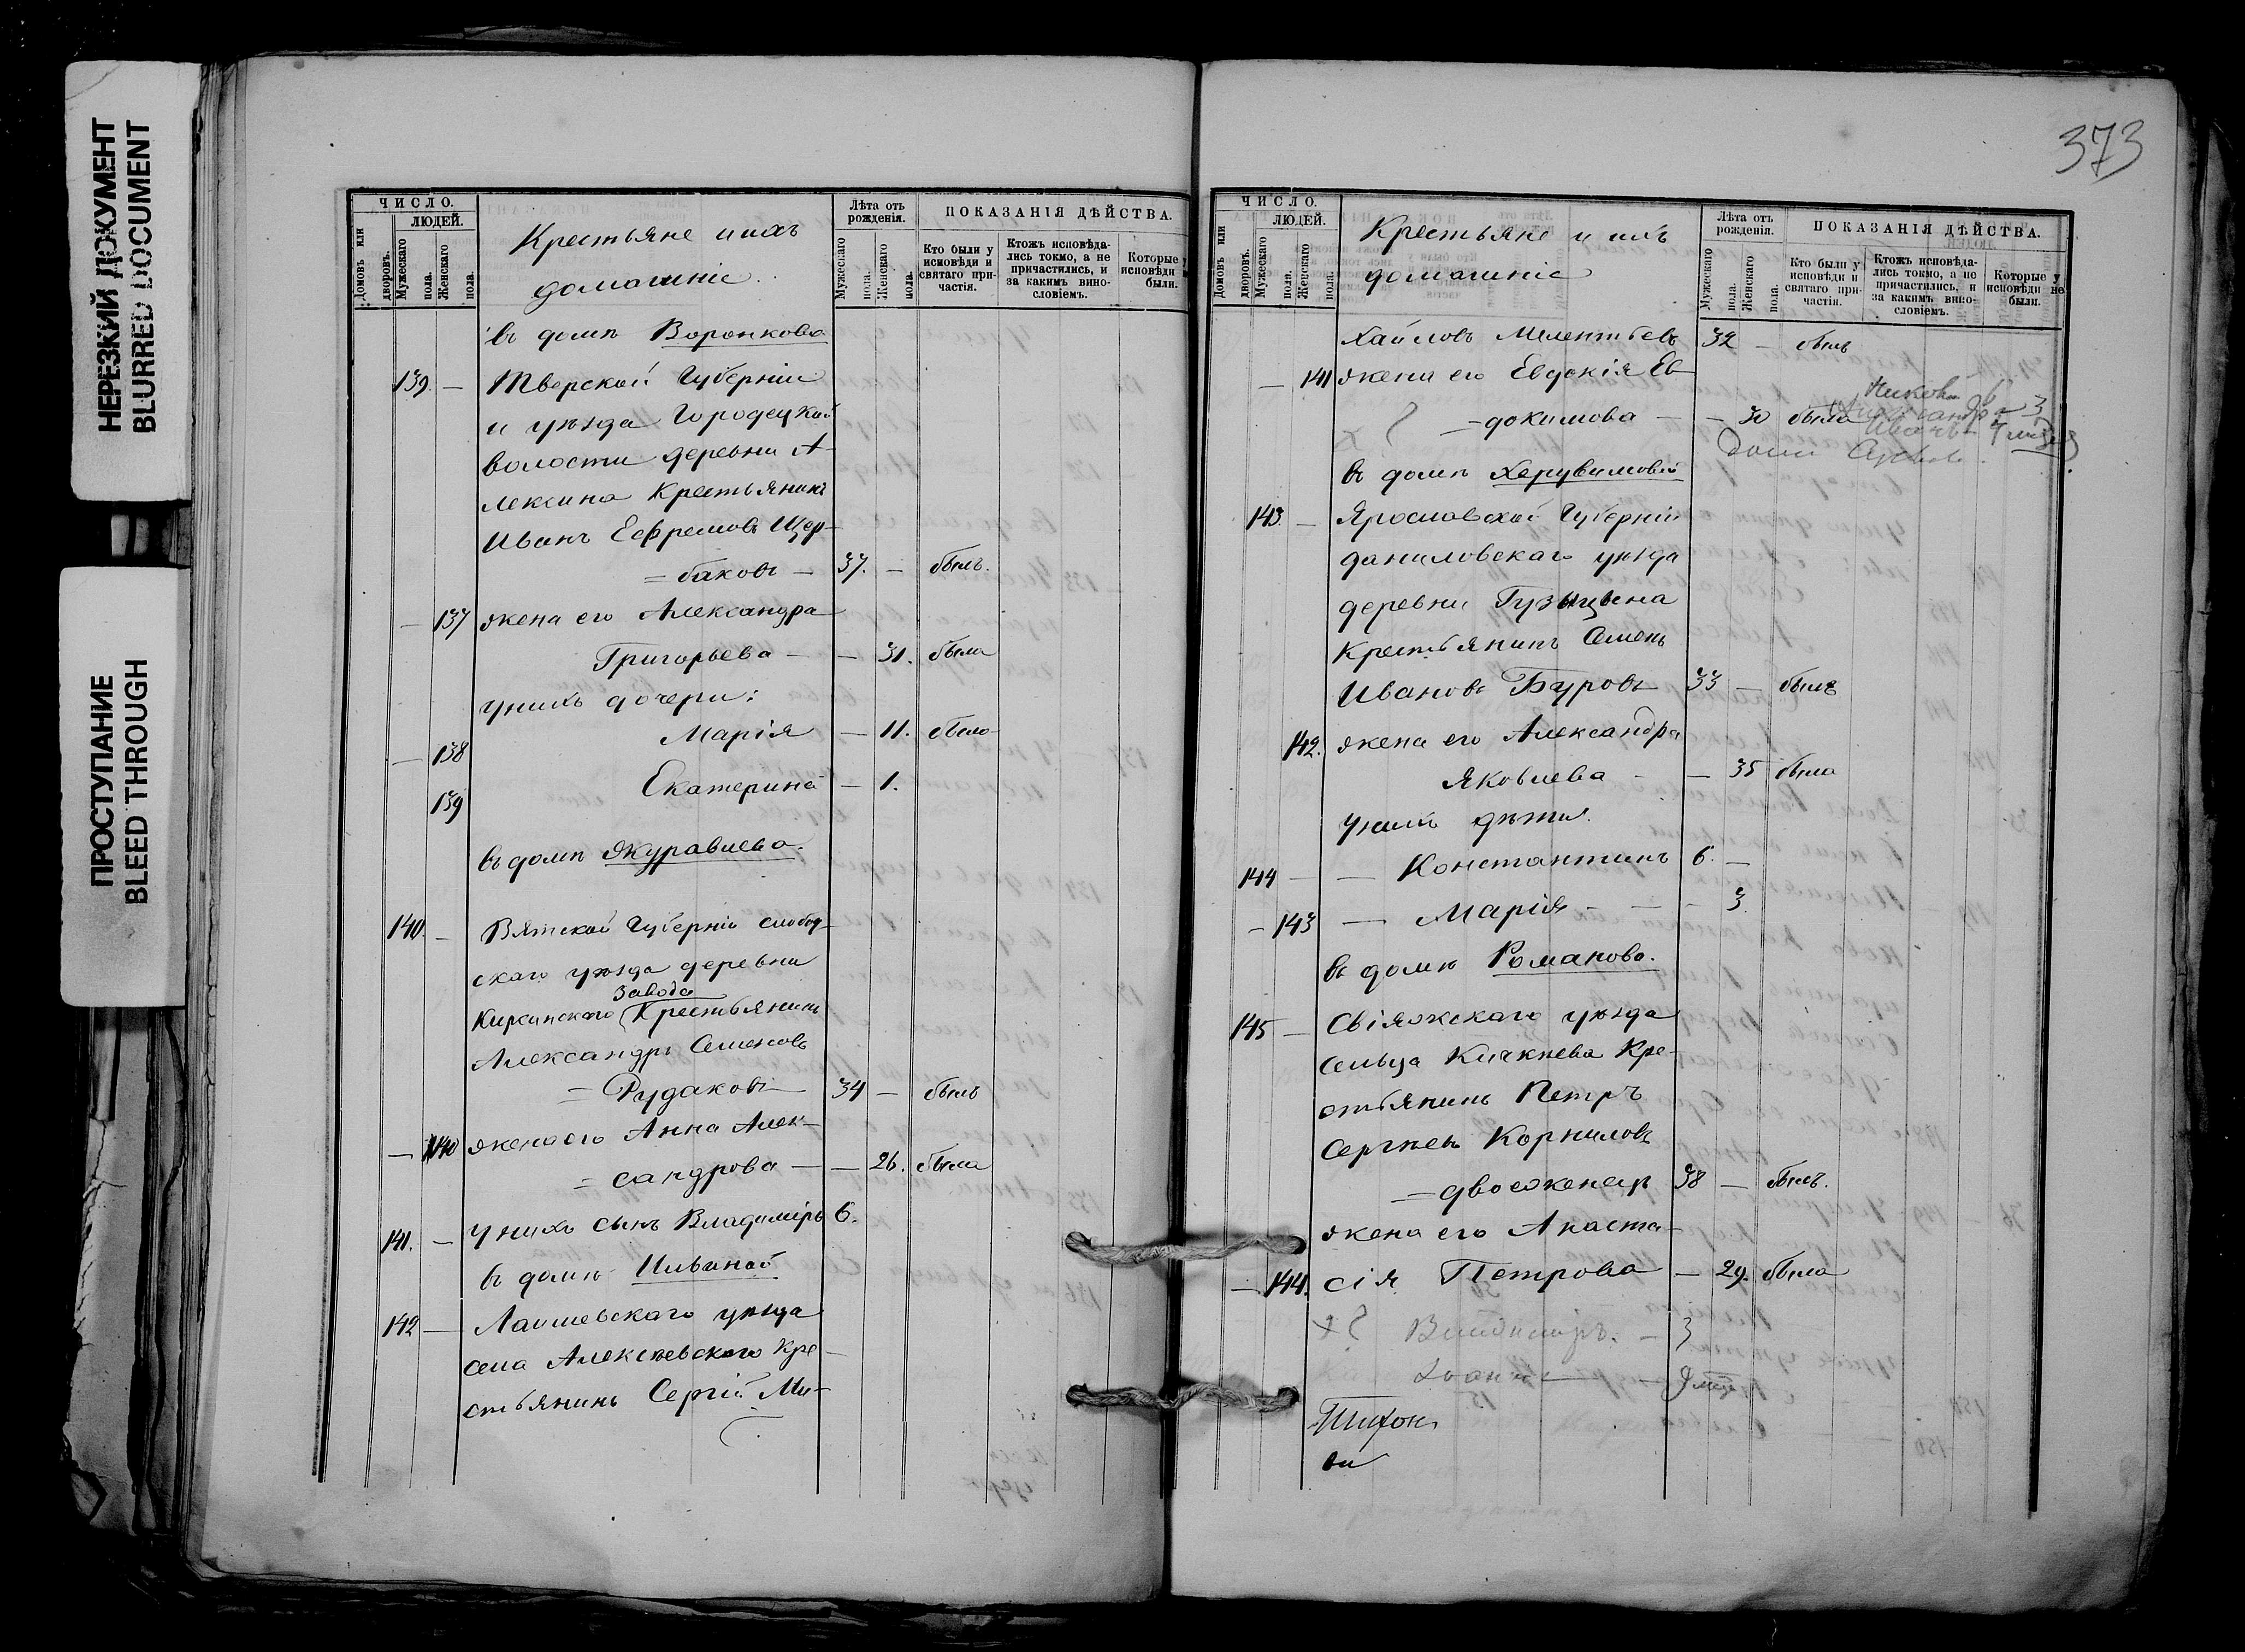 НЕРЕЗКИЙ ДОКУМЕНТ
BLURRED DOCUMENT
ПРОСТУПАНИЕ
BLEED THROUGH
ЧИСЛО.
ЛЮДЕЙ.
Домовъ или дворовъ.
Мужескаго пола.
Женскаго пола.
Крестьяне и ихъ
домашніе.
Лѣта отъ рожденія.
Мужескаго пола.
Женскаго пола.
ПОКАЗАНІЯ ДѢЙСТВА.
Кто были у исповѣди и святаго причастія.
Ктожъ исповѣда-лись токмо, а не причастились, и за какимъ вино-словіемъ.
Которые у исповѣди были.
въ домѣ Воронкова
139. — Тверской Губерніи
и уѣзда Городецкой
волости деревни А-
лексина Крестьянинъ
Иванъ Ефремовъ Щер-
= баковъ — 37. — былъ.
— 137 жена его Александра
Григорьева — — 31. была
у нихъ дочери:
— 138 Марія — 11. была
139 Екатерина — 1.
въ домѣ Журавлева.
140. — Вятской Губерніи слобод-
скаго уѣзда деревни
завода
Кирсинскаго Крестьянинъ
Александръ Семеновъ
= Рудаковъ 34 — былъ
— 140 жена его Анна Алек-
= сандрова — — 26. была
141. — у нихъ сынъ Владиміръ 6.
въ домѣ Ильиной
142 — Лаишевскаго уѣзда
села Алексѣевскаго Кре-
стьянинъ Сергій Ми-
373
ЧИСЛО.
ЛЮДЕЙ.
Домовъ или дворовъ.
Мужескаго пола.
Женскаго пола.
Крестьяне и ихъ
домашніе
Лѣта отъ рожденія.
Мужескаго пола.
Женскаго пола.
ПОКАЗАНІЯ ДѢЙСТВА.
Кто были у исповѣди и святаго причастія.
Ктожъ исповѣда-лись токмо, а не причастились, и за какимъ вино-словіемъ.
Которые у исповѣди не были.
хайловъ Мелентьевъ 32 — былъ
— 141 жена его Евдокія Ев-
= докимова — — 30 была
Александра 3
Иванъ
въ домѣ Херувимовой
143. — Ярославской Губерніи
даниловскаго уѣзда
деревни
Крестьянинъ Семенъ
Ивановъ Буровъ 33 — былъ
142. жена его Александра
Яковлева — — 35 была
у нихъ дѣти.
144 — — Константинъ 6. —
— 143 — Марія — — — 3.
въ домѣ Романова.
145 — Свіяжскаго уѣзда
сельца Кичкнева Кре-
стьянинъ Петръ
Сергѣевъ Корниловъ
= двоеженецъ 38 — былъ.
жена его Анаста-
— 144. сія Петрова — 29. была
Владиміръ. — 3
Іоаннъ — 9 мѣс
Тихон
ви